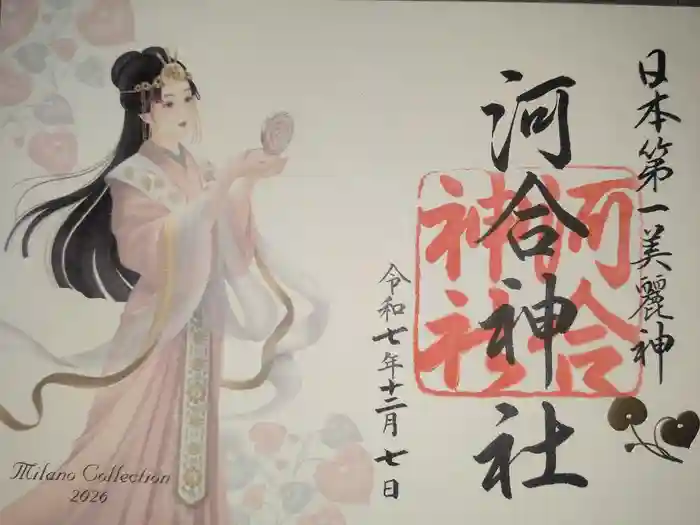 日本第一美麗神
河合神社
河合神社
令和七年十二月七日
Milano Collection
2026